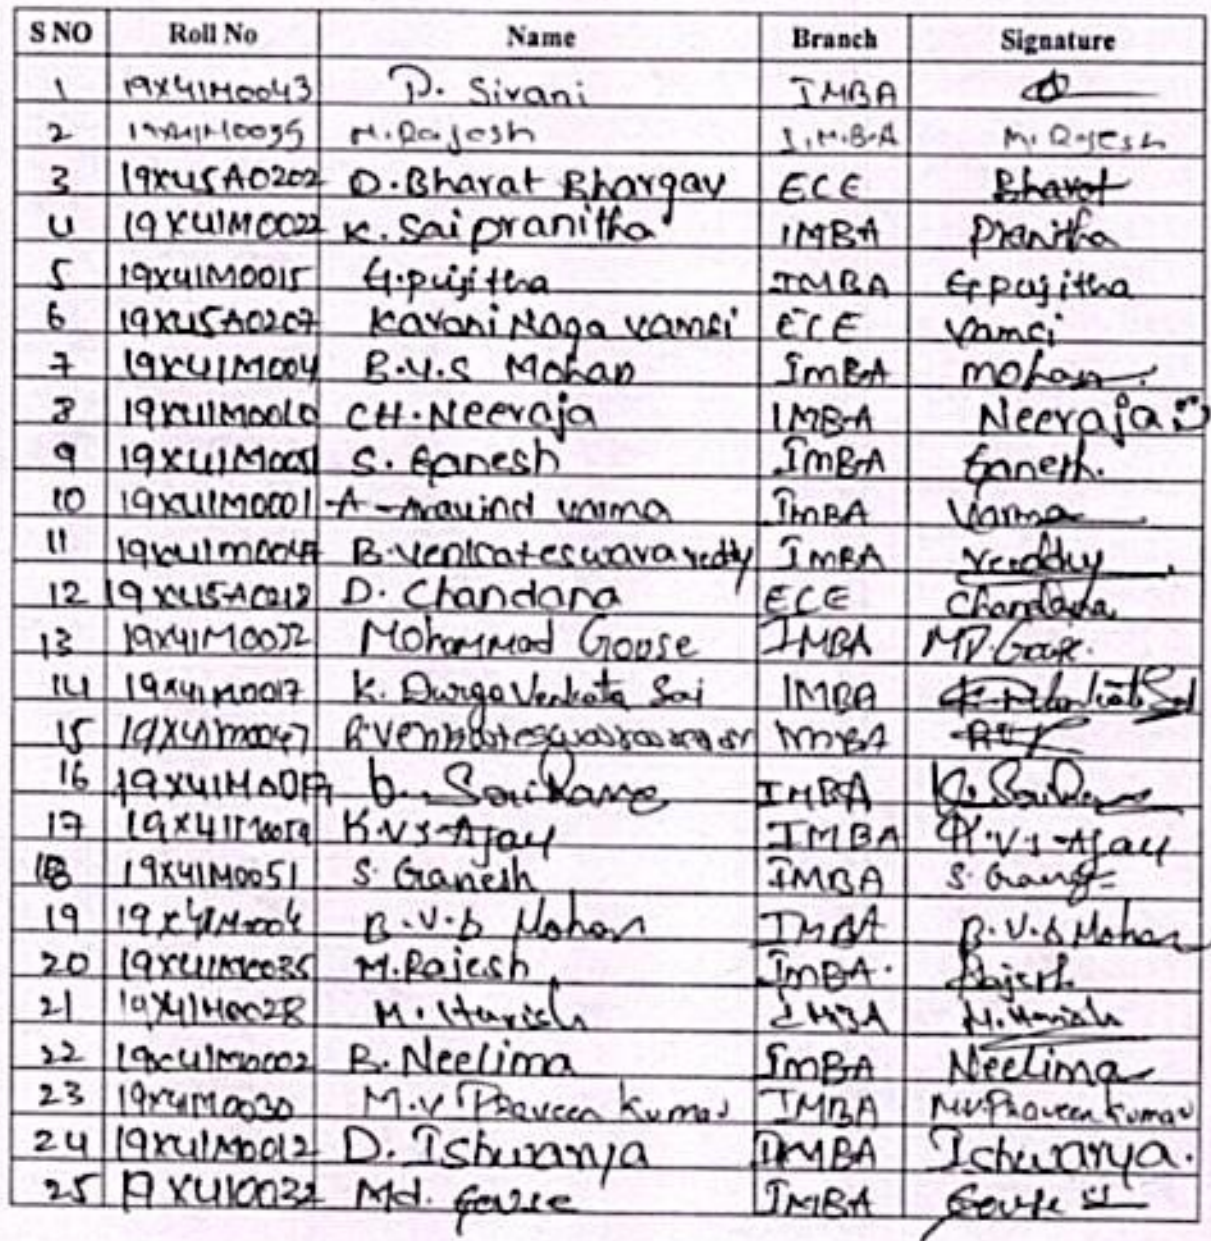 S NO Roll No Name Branch Signature
1 19X41M0043 P. Sivani IMBA
2 19X41M0035 M.Rajesh I.M.B.A M. Rajesh
3 19X45A0202 D.Bharat Bhargav ECE Bharat
4 19X41M0022 K. Sai pranitha IMBA Pranitha
5 19X41M0015 G.pujitha IMBA G.pujitha
6 19X45A0207 Kavani Naga vamsi ECE Vamsi
7 19X41M004 B.V.S Mohan ImBA mohan.
8 19X41M0010 CH.Neeraja IMBA Neeraja
9 19X41M0051 S. Ganesh ImBA Ganesh.
10 19X41M0001 A-Aravind varma ImBA Varma
11 B.venkateswara reddy ImBA reddy
12 19X45A0212 D. Chandana ECE Chandana
13 19X41M0032 Mohammad Gouse IMBA MD.Gouse.
14 19X41M0017 K. Durga Venkata Sai IMBA
15 19X41m0047
16 Sai Rame IMBA K. Sai Rame
17 19X41M0019 K.V.S-Ajay IMBA K.V.S-Ajay
18 19X41M0051 S. Ganesh IMBA
19 19X41M004 B.V.S Mohan IMBA B.V.S Mohan
20 19X41M0035 M.Rajesh ImBA. Rajesh
21 19X41M0028 M. Harish IMBA M.Harish
22 19X41M0002 B. Neelima ImBA Neelima
23 19X41M0030 M.V Praveen Kumar IMBA M.V.Praveen Kumar
24 19X41M0012 D. Ishwarya IMBA Ishwarya.
25 19X410032 Md. Gouse IMBA Gouse